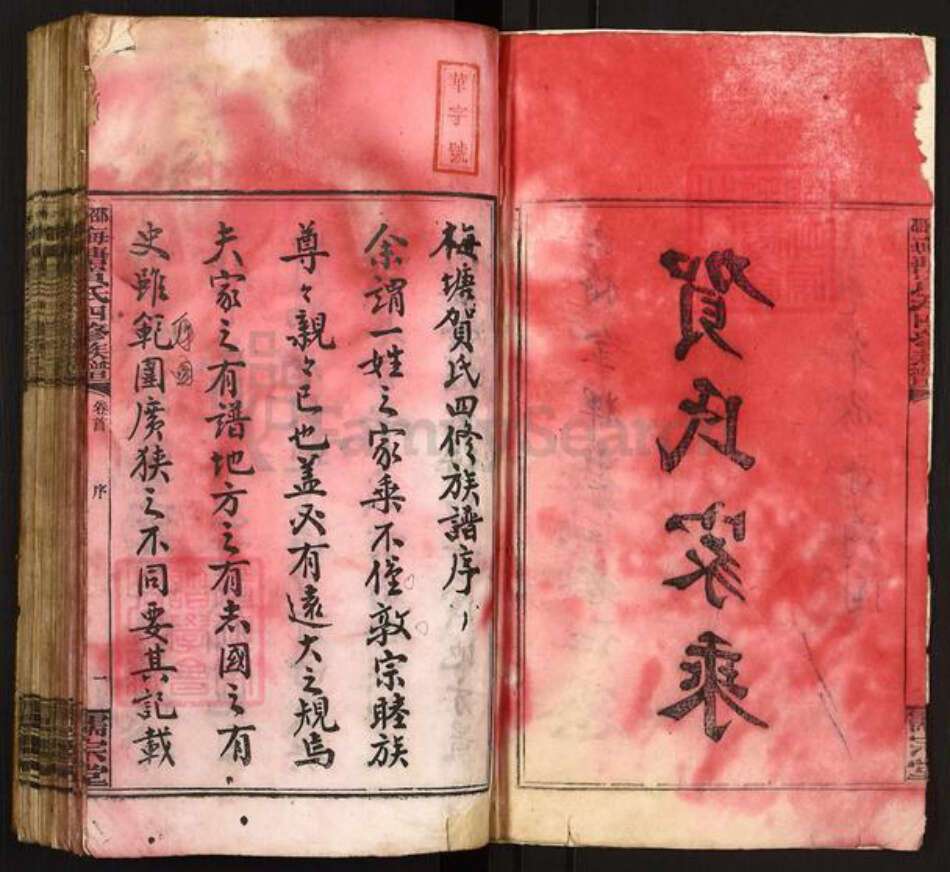 賀氏家乘
華字號
梅塘賀氏四修族譜序
余謂一姓之家乘不僅敦宗睦族
尊々親々已也盖必有遠大之規焉
夫家之有譜地方之有志國之有
史雖範圍廣狹之不同要其記載
邵梅塘賀氏四修族譜
卷首
序
一
FamilySearch